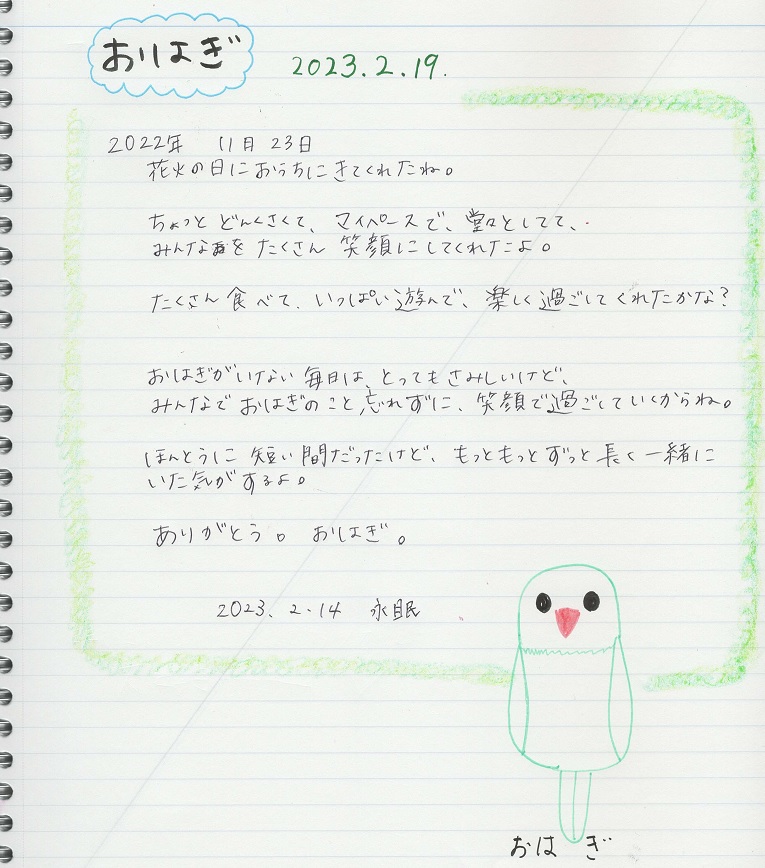 おはぎ
2023.2.19.
2022年 11月23日
花火の日におうちにきてくれたね。
ちょっと どんくさくて、マイペースで、堂々としてて、
みんなをたくさん 笑顔にしてくれたよ。
たくさん食べて、いっぱい遊んで、楽しく過ごしてくれたかな?
おはぎがいない毎日は、とってもさみしいけど、
みんなでおはぎのこと忘れずに、笑顔で過ごしていくからね。
ほんとうに短い間だったけど、もっともっとずっと長く一緒に
いた気がするよ。
ありがとう。おはぎ。
2023.2.14 永眠
おはぎ